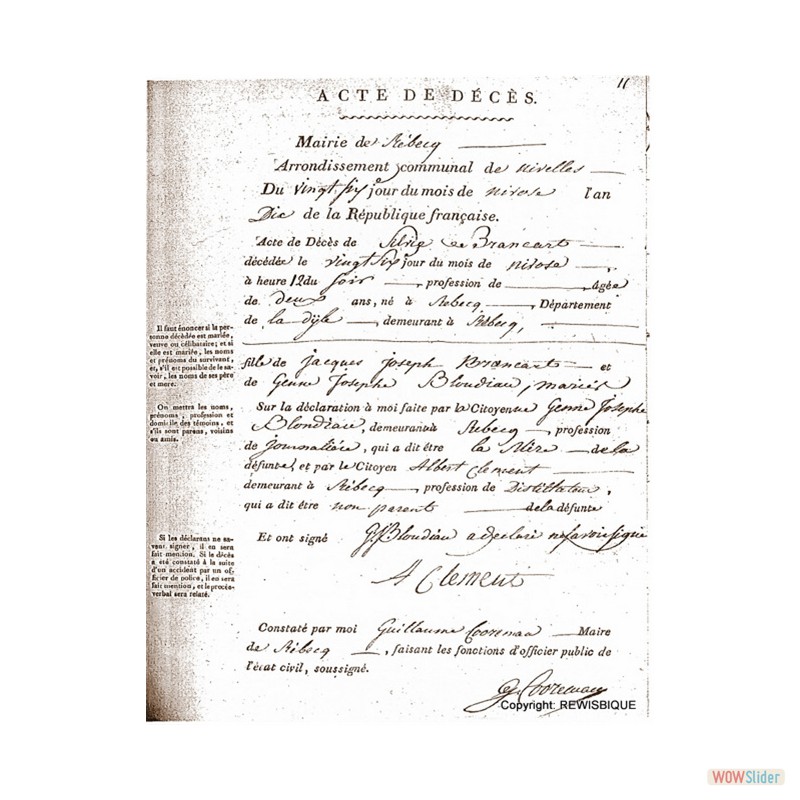 11
ACTE DE DÉCÈS.
Mairie de Rébecq
Arrondissement communal de nivelles
Du vingt six jour du mois de nivose l'an
Dix de la République française.
Acte de Décès de Silvie Brancart
décédée le vingt six jour du mois de nivose,
à heure 12 du soir, profession de âgée
de deux ans, né à Rebecq, Département
de la dyle, demeurant à Rébecq,
Il faut énoncer si la per-
sonne décédée est mariée,
veuve ou célibataire; et si
elle est mariée, les noms
et prénoms du survivant,
et, s'il est possible de le sa-
voir, les noms de ses père
et mere.
fille de jacques joseph Brancart et
de Genne Josephe Blondiau, mariés
On mettra les noms,
prénoms, profession et
domicile des témoins, et
s'ils sont parens, voisins
ou amis.
Sur la déclaration à moi faite par la Citoyenne Genne Josephe
Blondiau, demeurant à Rebecq, profession
de journalière, qui a dit être la Mère de la
défunte, et par le Citoyen Albert Clement
demeurant à Rébecq, profession de Distillateur,
qui a dit être non parent de la défunte
Si les déclarans ne sa-
vent signer, il en sera
fait mention. Si le décès
a été constaté à la suite
d'un accident par un of-
ficier de police, il en sera
fait mention, et le procès-
verbal sera relaté.
Et ont signé G J Blondiau a declaré ne savoir signé
A Clement
Constaté par moi Guillaume Cooreman Maire
de Rébecq, faisant les fonctions d'officier public de
l'état civil, soussigné.
G Cooreman
Copyright: REWISBIQUE
WOWSlider